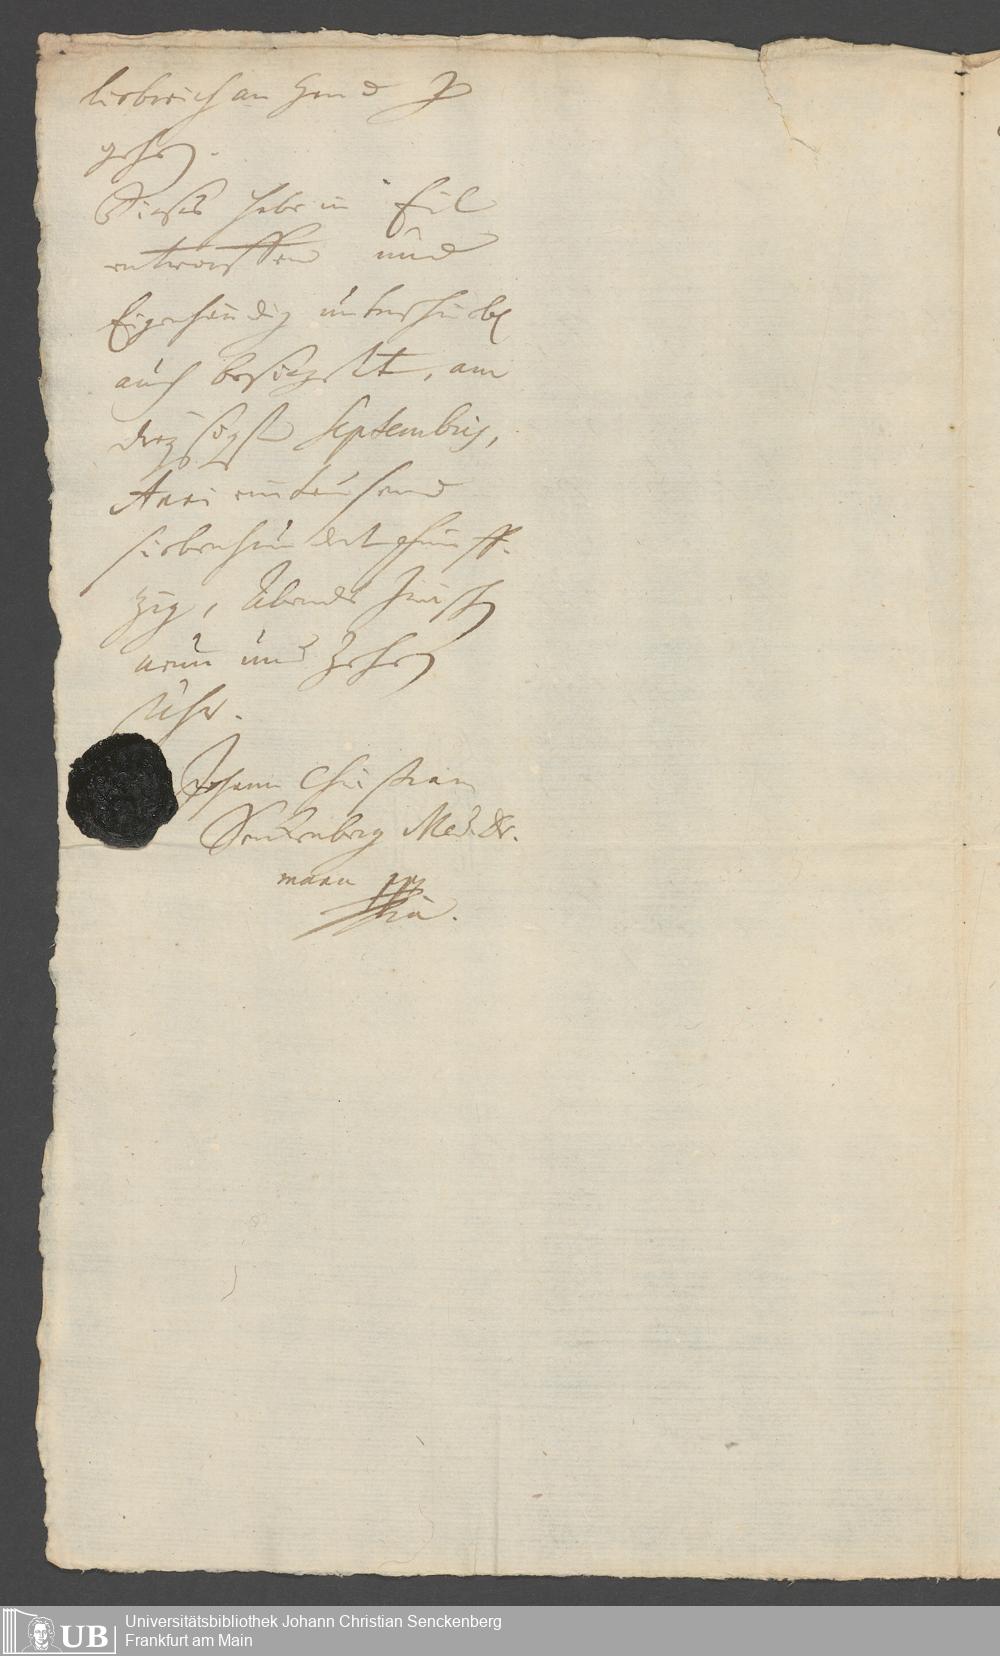 liebreich an Hand
gehen.
Dieses habe in Eil
entworffen und
Eigenhändig unterschrieben
auch besiegelt, am
dreyßigsten Septembris,
Anni eintausend
siebenhundertfunff-
zig, Abends zwischen
neun und Zehen
Uhr.
Johann Christian
Senckenberg Med. Dr.
manu ppria.
UB
Universitätsbibliothek Johann Christian Senckenberg
Frankfurt am Main